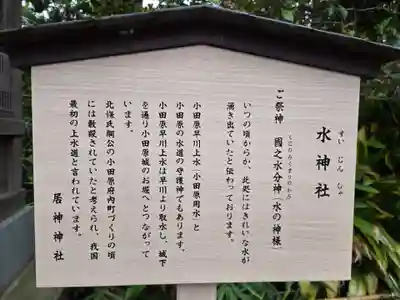 水神社
すいじんしゃ
ご祭神 國之水分神(水の神様)
くにのみくまりのかみ
いつの頃からか、此処にはきれいな水が
湧き出ていたと伝わっております。
小田原早川上水(小田原用水)と
小田原の水道の守護神でもあります。
小田原早川上水は早川より取水し、城下
を通り小田原城のお堀へとつながって
います。
北條氏綱公の小田原府内町づくりの頃
には敷設されていたと考えられ、我国
最初の上水道と言われています。
居神神社